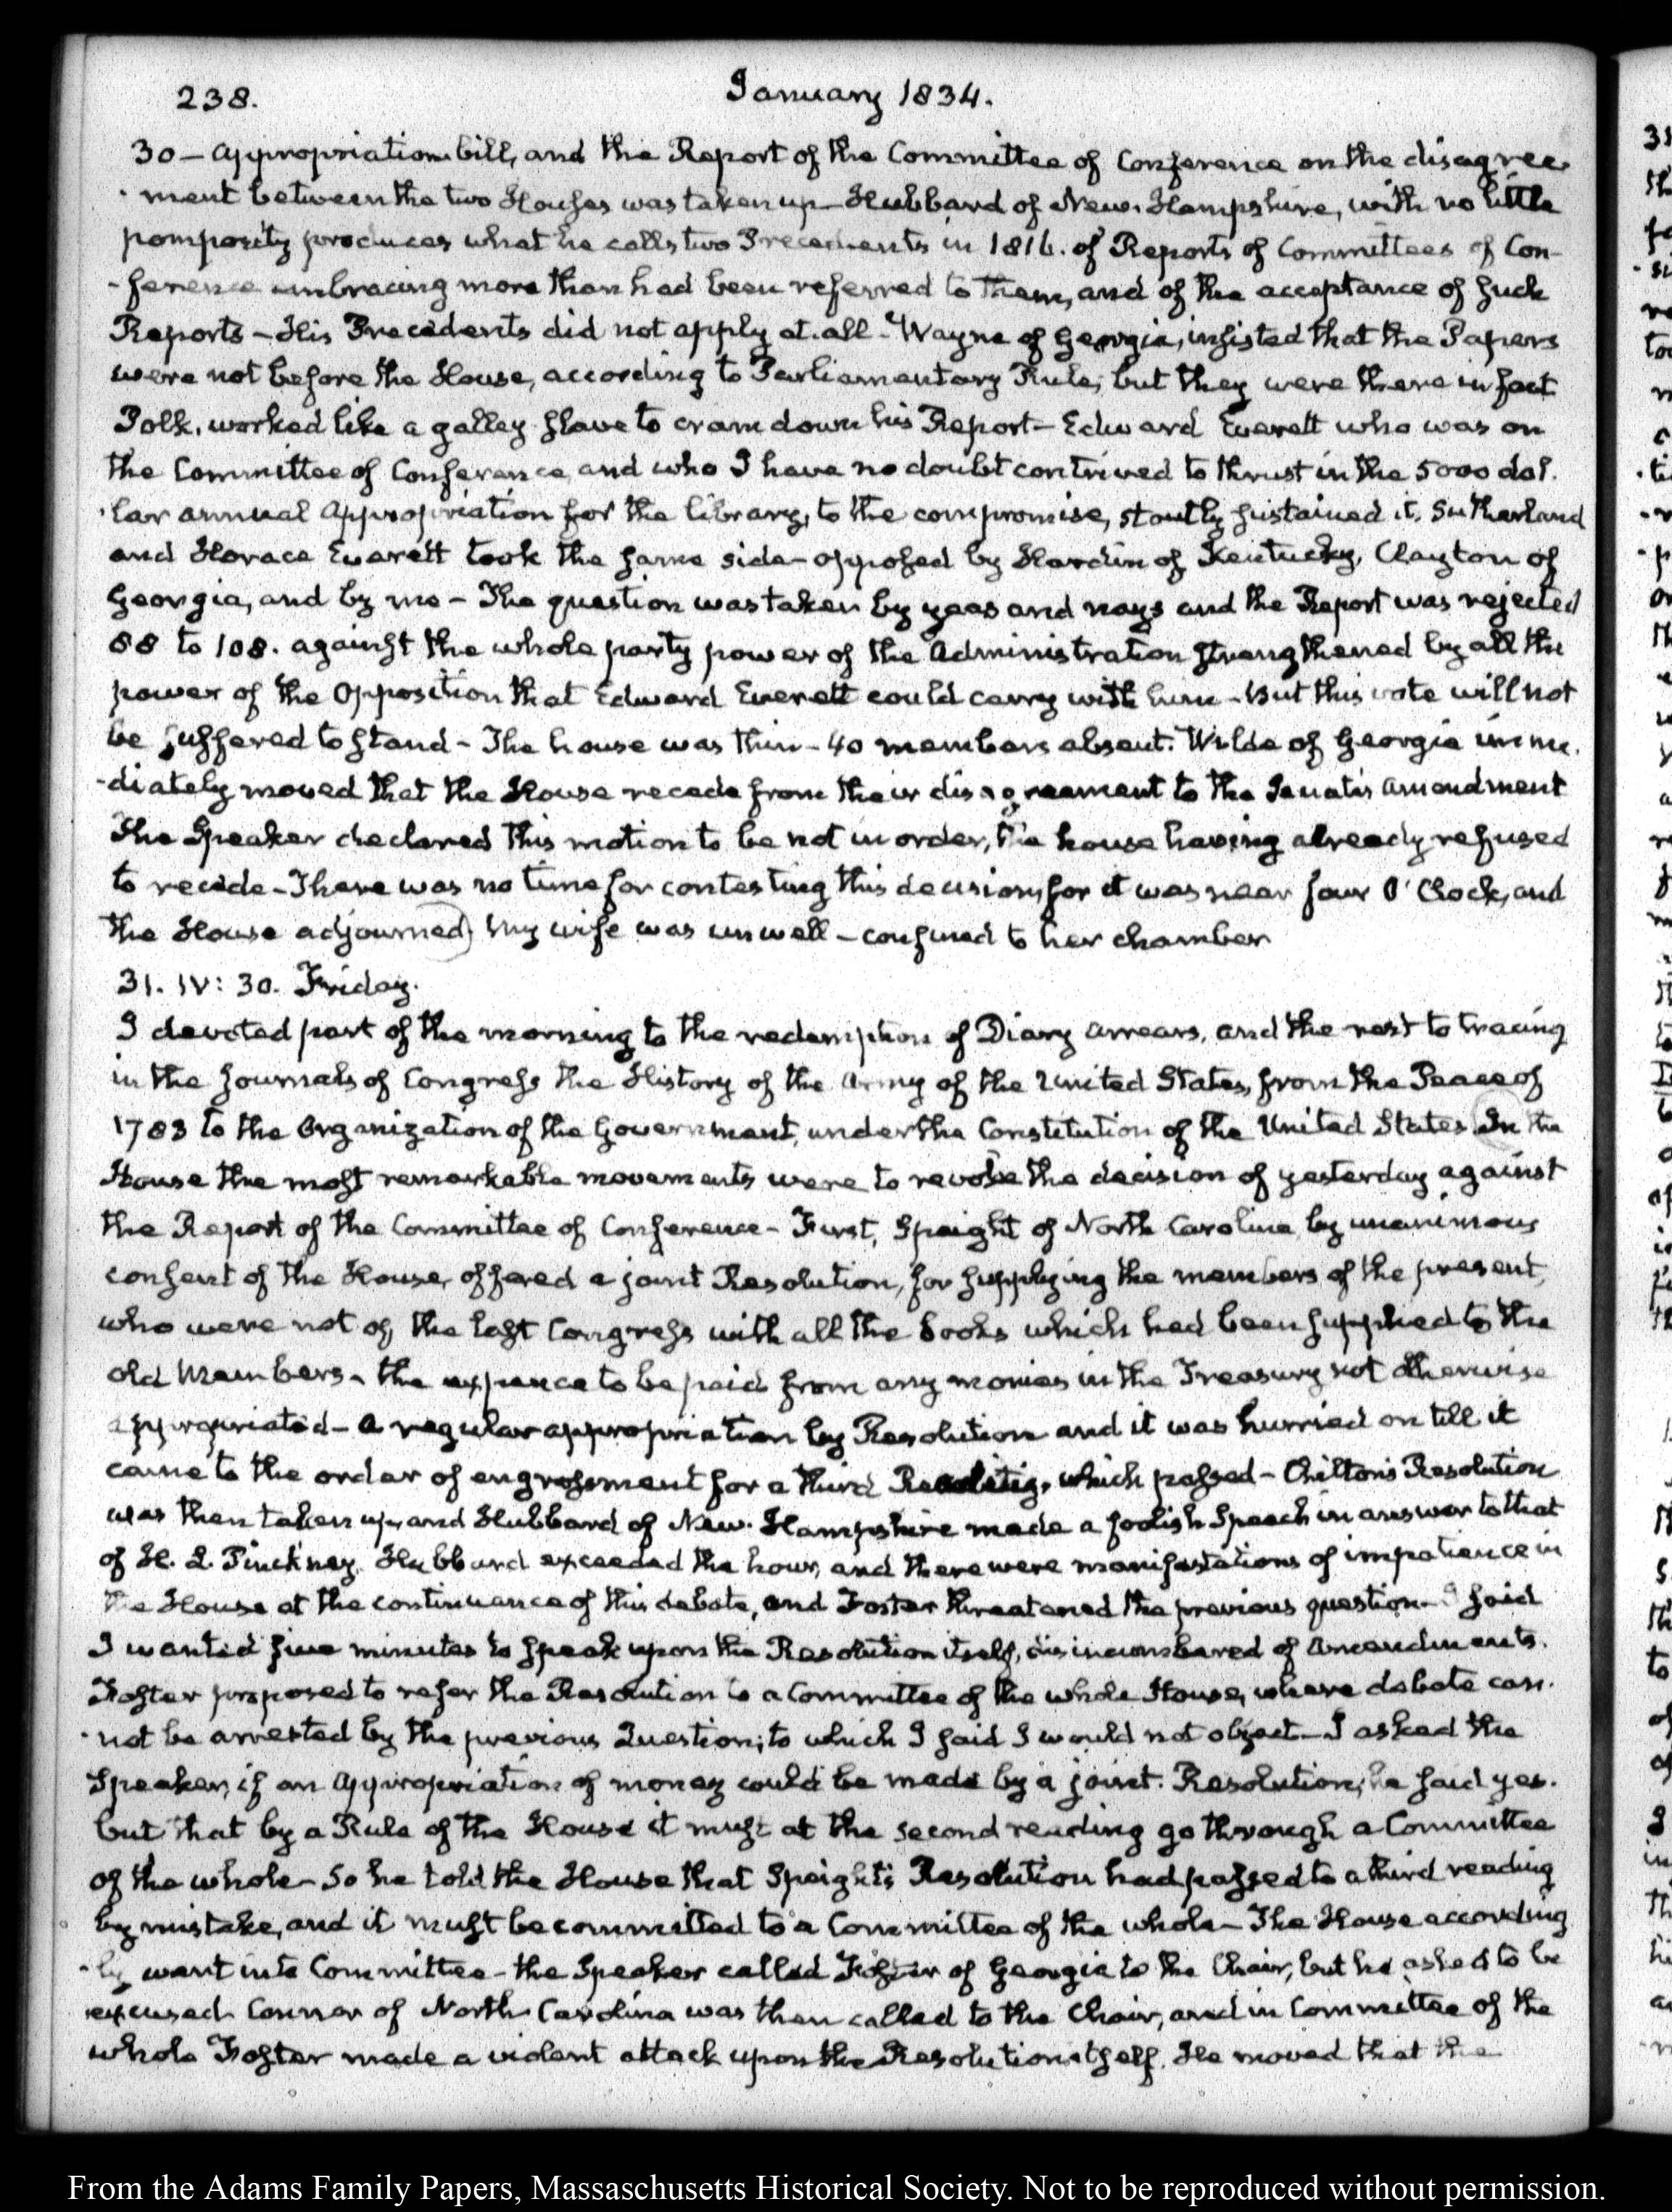 238.
January 1834.
30 — Appropriation bill, and the Report of the Committee of Conference on the disagree-
-ment between the two Houses was taken up — Hubbard of New-Hampshire, with no little
pomposity produces what he calls two Precedents in 1816. of Reports of Committees of Con-
-ference embracing more than had been referred to them, and of the acceptance of such
Reports — His Precedents did not apply at all — Wayne of Georgia, insisted that the Papers
were not before the House, according to Parliamentary Rule; but they were there in fact
Polk, worked like a galley slave to cram down his Report — Edward Everett who was on
the Committee of Conference, and who I have no doubt contrived to thrust in the 5000 dol-
-lar annual Appropriation for the library, to the compromise, stoutly sustained it. Sutherland
and Horace Everett took the same side — opposed by Hardin of Kentucky, Clayton of
Georgia, and by me — The question was taken by yeas and nays and the Report was rejected
88 to 108. against the whole party power of the Administration strengthened by all the
power of the Opposition that Edward Everett could carry with him — But this vote will not
be suffered to stand — The house was thin — 40 members absent. Wilde of Georgia imme-
-diately moved that the House recede from their disagreement to the Senate's amendment
The Speaker declared this motion to be not in order, the house having already refused
to recede — There was no time for contesting this decision, for it was near four O'Clock, and
the House adjourned) My wife was unwell — confined to her chamber
31. IV: 30. Friday.
I devoted part of the morning to the redemption of Diary arrears, and the rest to tracing
in the Journals of Congress the History of the Army of the United States, from the Peace of
1783 to the Organization of the Government, under the Constitution of the United States In the
House the most remarkable movements were to revoke the decision of yesterday against
the Report of the Committee of Conference — First, Speight of North Carolina by unanimous
consent of the House, offered a joint Resolution, for supplying the members of the present,
who were not of the last Congress with all the books which had been supplied to the
old Members — the expence to be paid from any monies in the Treasury not otherwise
appropriated — A regular appropriation by Resolution and it was hurried on till it
came to the order of engrossment for a third Reading, which passed — Chilton's Resolution
was then taken up, and Hubbard of New-Hampshire made a foolish Speech in answer to that
of H. L. Pinckney. Hubbard exceeded the hour, and there were manifestations of impatience in
the House at the continuance of this debate, and Foster threatened the previous question — I said
I wanted five minutes to speak upon the Resolution itself, disincumbered of amendments.
Foster proposed to refer the Resolution to a Committee of the whole House, where debate can-
-not be arrested by the previous Question; to which I said I would not object — I asked the
Speaker, if an Appropriation of money could be made by a joint Resolution; he said yes.
but that by a Rule of the House it must at the second reading go through a Committee
of the whole — So he told the House that Speight's Resolution had passed to a third reading
by mistake, and it must be committed to a Committee of the whole — The House according-
-ly went into Committee — the Speaker called Foster of Georgia to the Chair, but he asked to be
excused. Connor of North-Carolina was then called to the Chair, and in Committee of the
whole Foster made a violent attack upon the Resolution itself. He moved that the
From the Adams Family Papers, Massachusetts Historical Society. Not to be reproduced without permission.